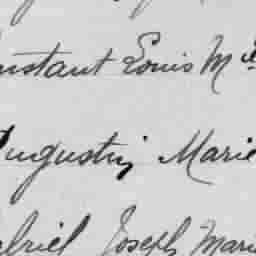 nstant Louis Mie
Augustin Marie
abriel Joseph Mari